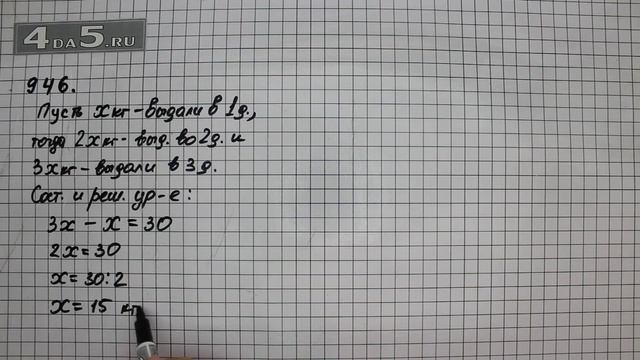 4DA5.RU
946.
Пусть x кг - выдали в 1 д.,
тогда 2x кг - выд. во 2 д. и
3x кг - выдали в 3 д.
Сост. и реш. ур-е:
3x - x = 30
2x = 30
x = 30:2
x = 15 кг